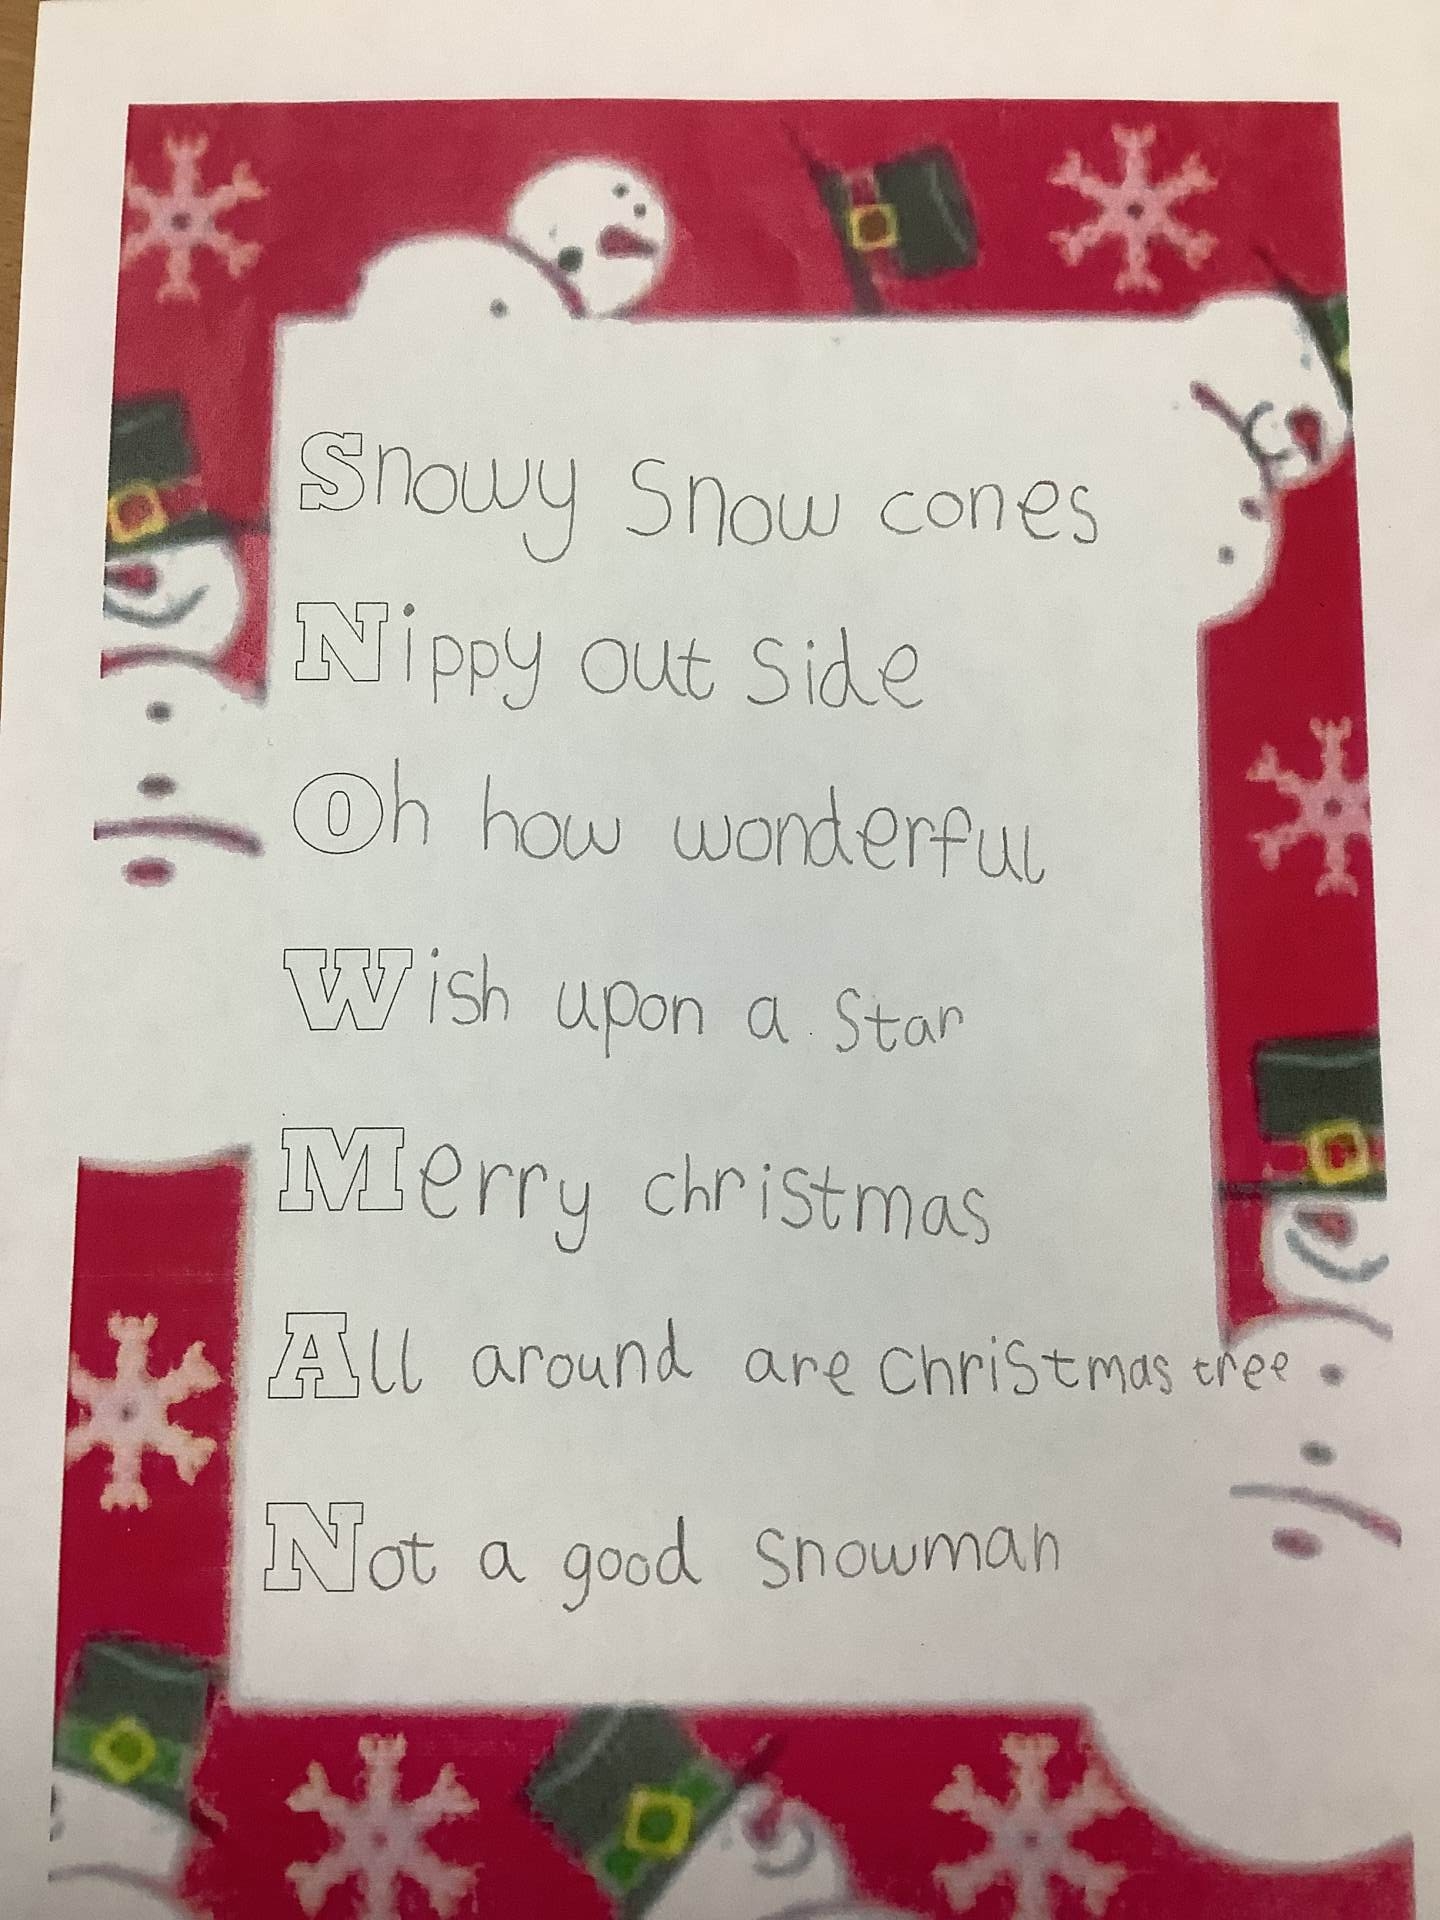 Snowy Snow cones
Nippy out side
Oh how wonderful
Wish upon a star
Merry christmas
All around are christmas tree
Not a good snowman